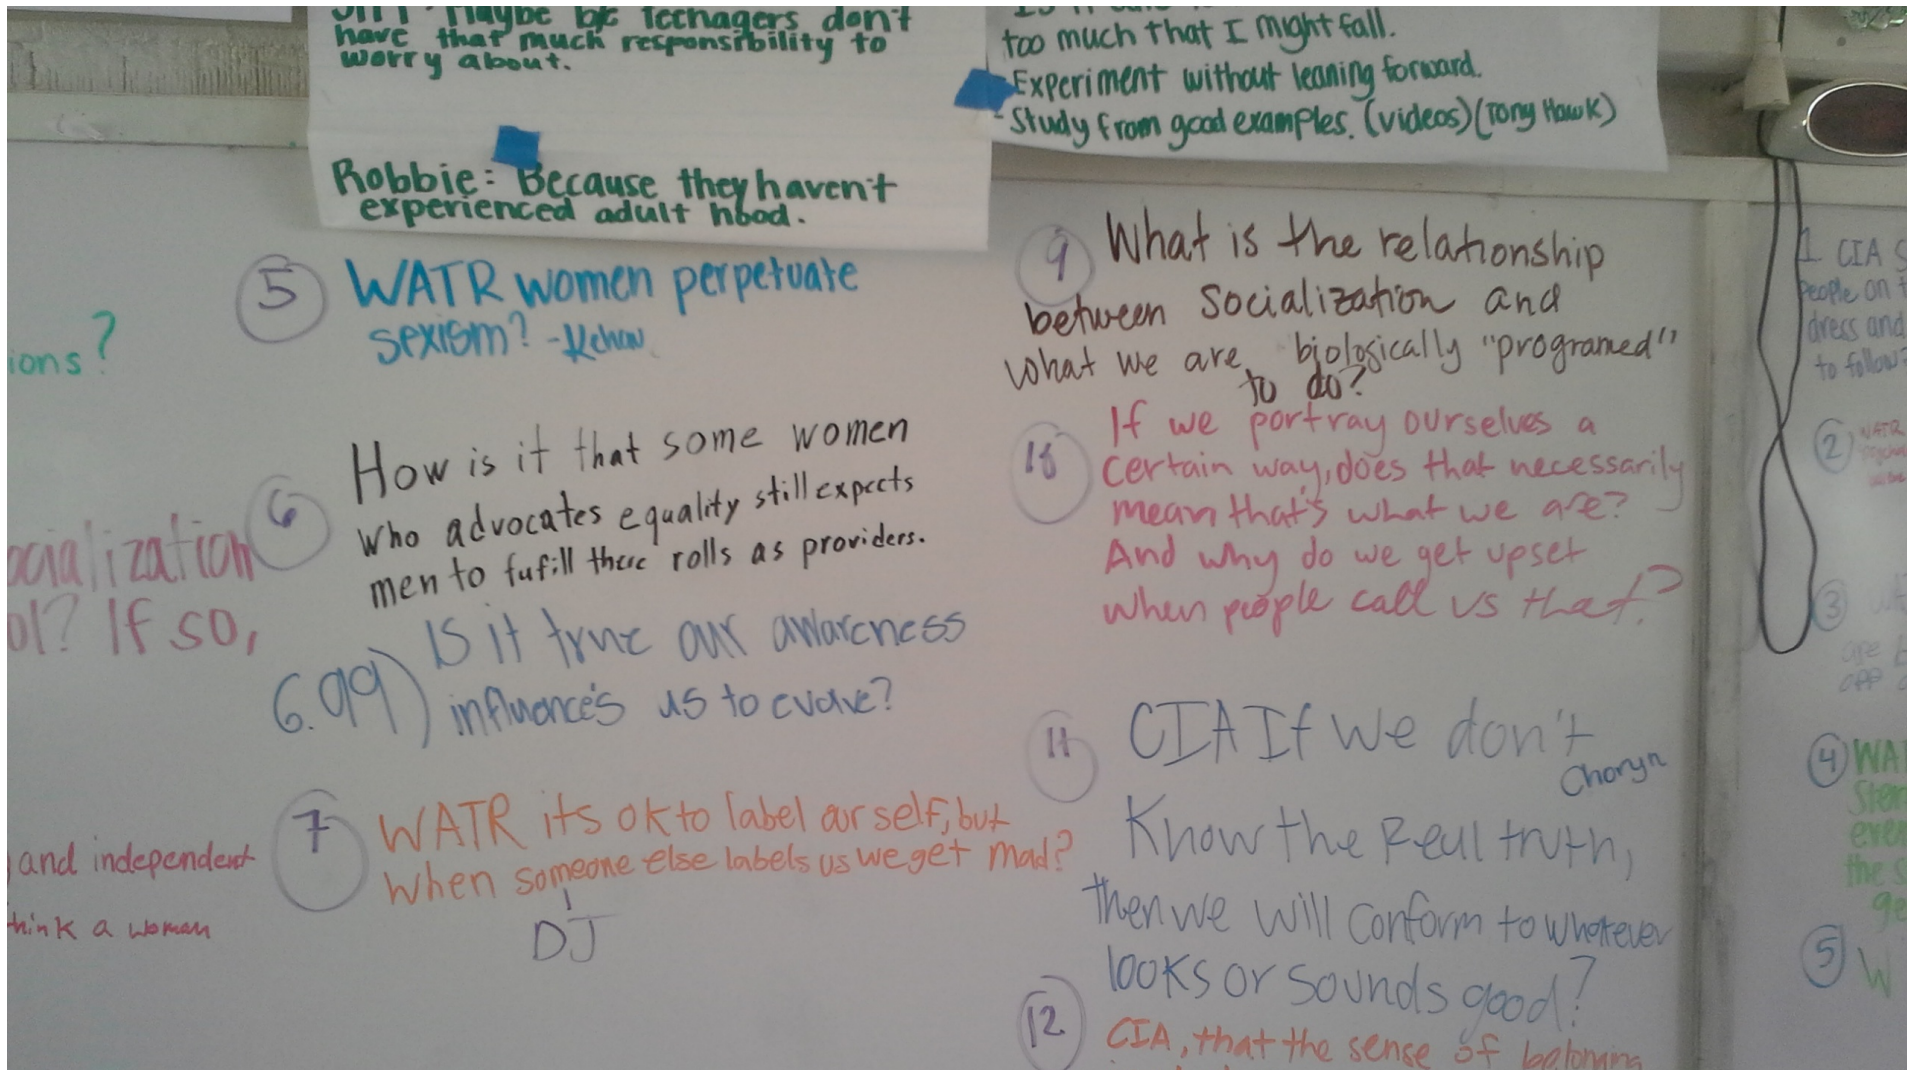 Maybe b/c Teenagers don't
have that much responsibility to
worry about.
Robbie: Because they haven't
experienced adult hood.
too much that I might fall.
- Experiment without leaning forward.
- Study from good examples. (videos) (Tony Hawk)
ions?
ocialization
ol? If so,
and independent
think a woman
5 WATR women perpetuate
sexism? -
6 How is it that some women
who advocates equality still expects
men to fufill there rolls as providers.
6.99) Is it true our awareness
influence's us to evolve?
7 WATR its ok to label our self, but
when someone else labels us we get mad?
DJ
9 What is the relationship
between Socialization and
what we are biologically "programed"
to do?
10 If we portray ourselves a
certain way, does that necessarily
mean that's what we are?
And why do we get upset
when people call us that?
11 CIA If we don't
Know the Real truth,
then we will conform to whatever
looks or sounds good?
12 CIA, that the sense of belonging
1 CIA
People on
dress and
to follow?
2 WATR
3
are
app
4 WA
the
5 W